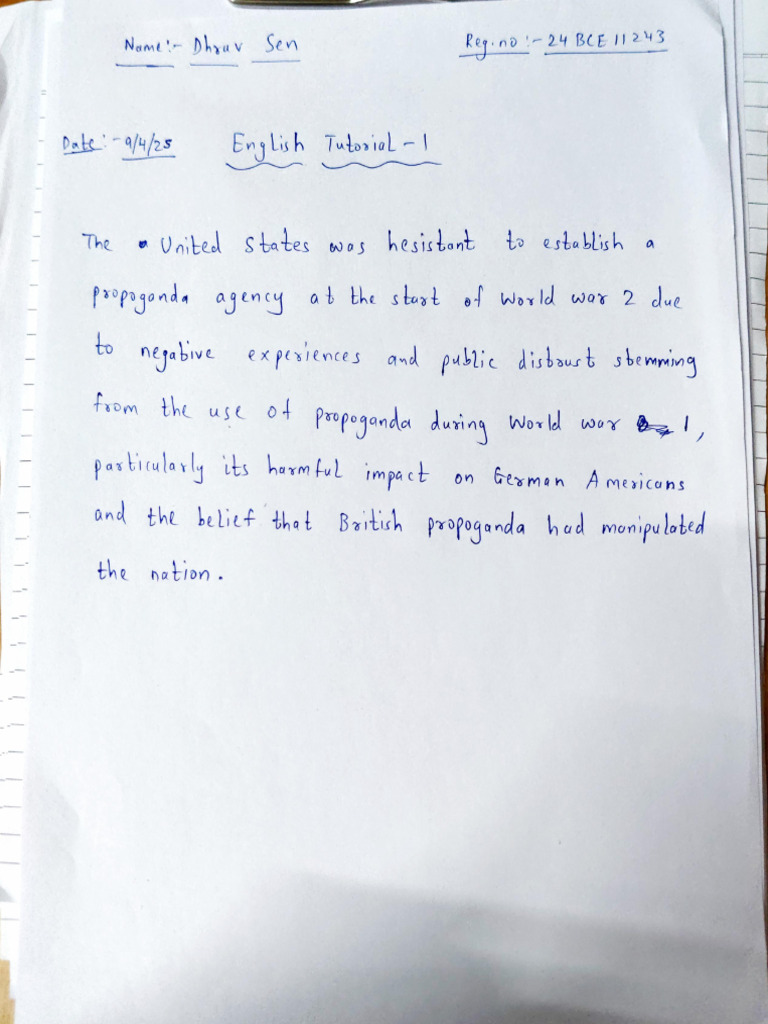 Name:- Dhruv Sen Reg.no:- 24 BCE 11243
Date:- 9/4/25 English Tutorial-1
The United States was hesistant to establish a
propoganda agency at the start of World war 2 due
to negative experiences and public distrust stemming
from the use of propoganda during World war 1,
particularly its harmful impact on German Americans
and the belief that British propoganda had manipulated
the nation.